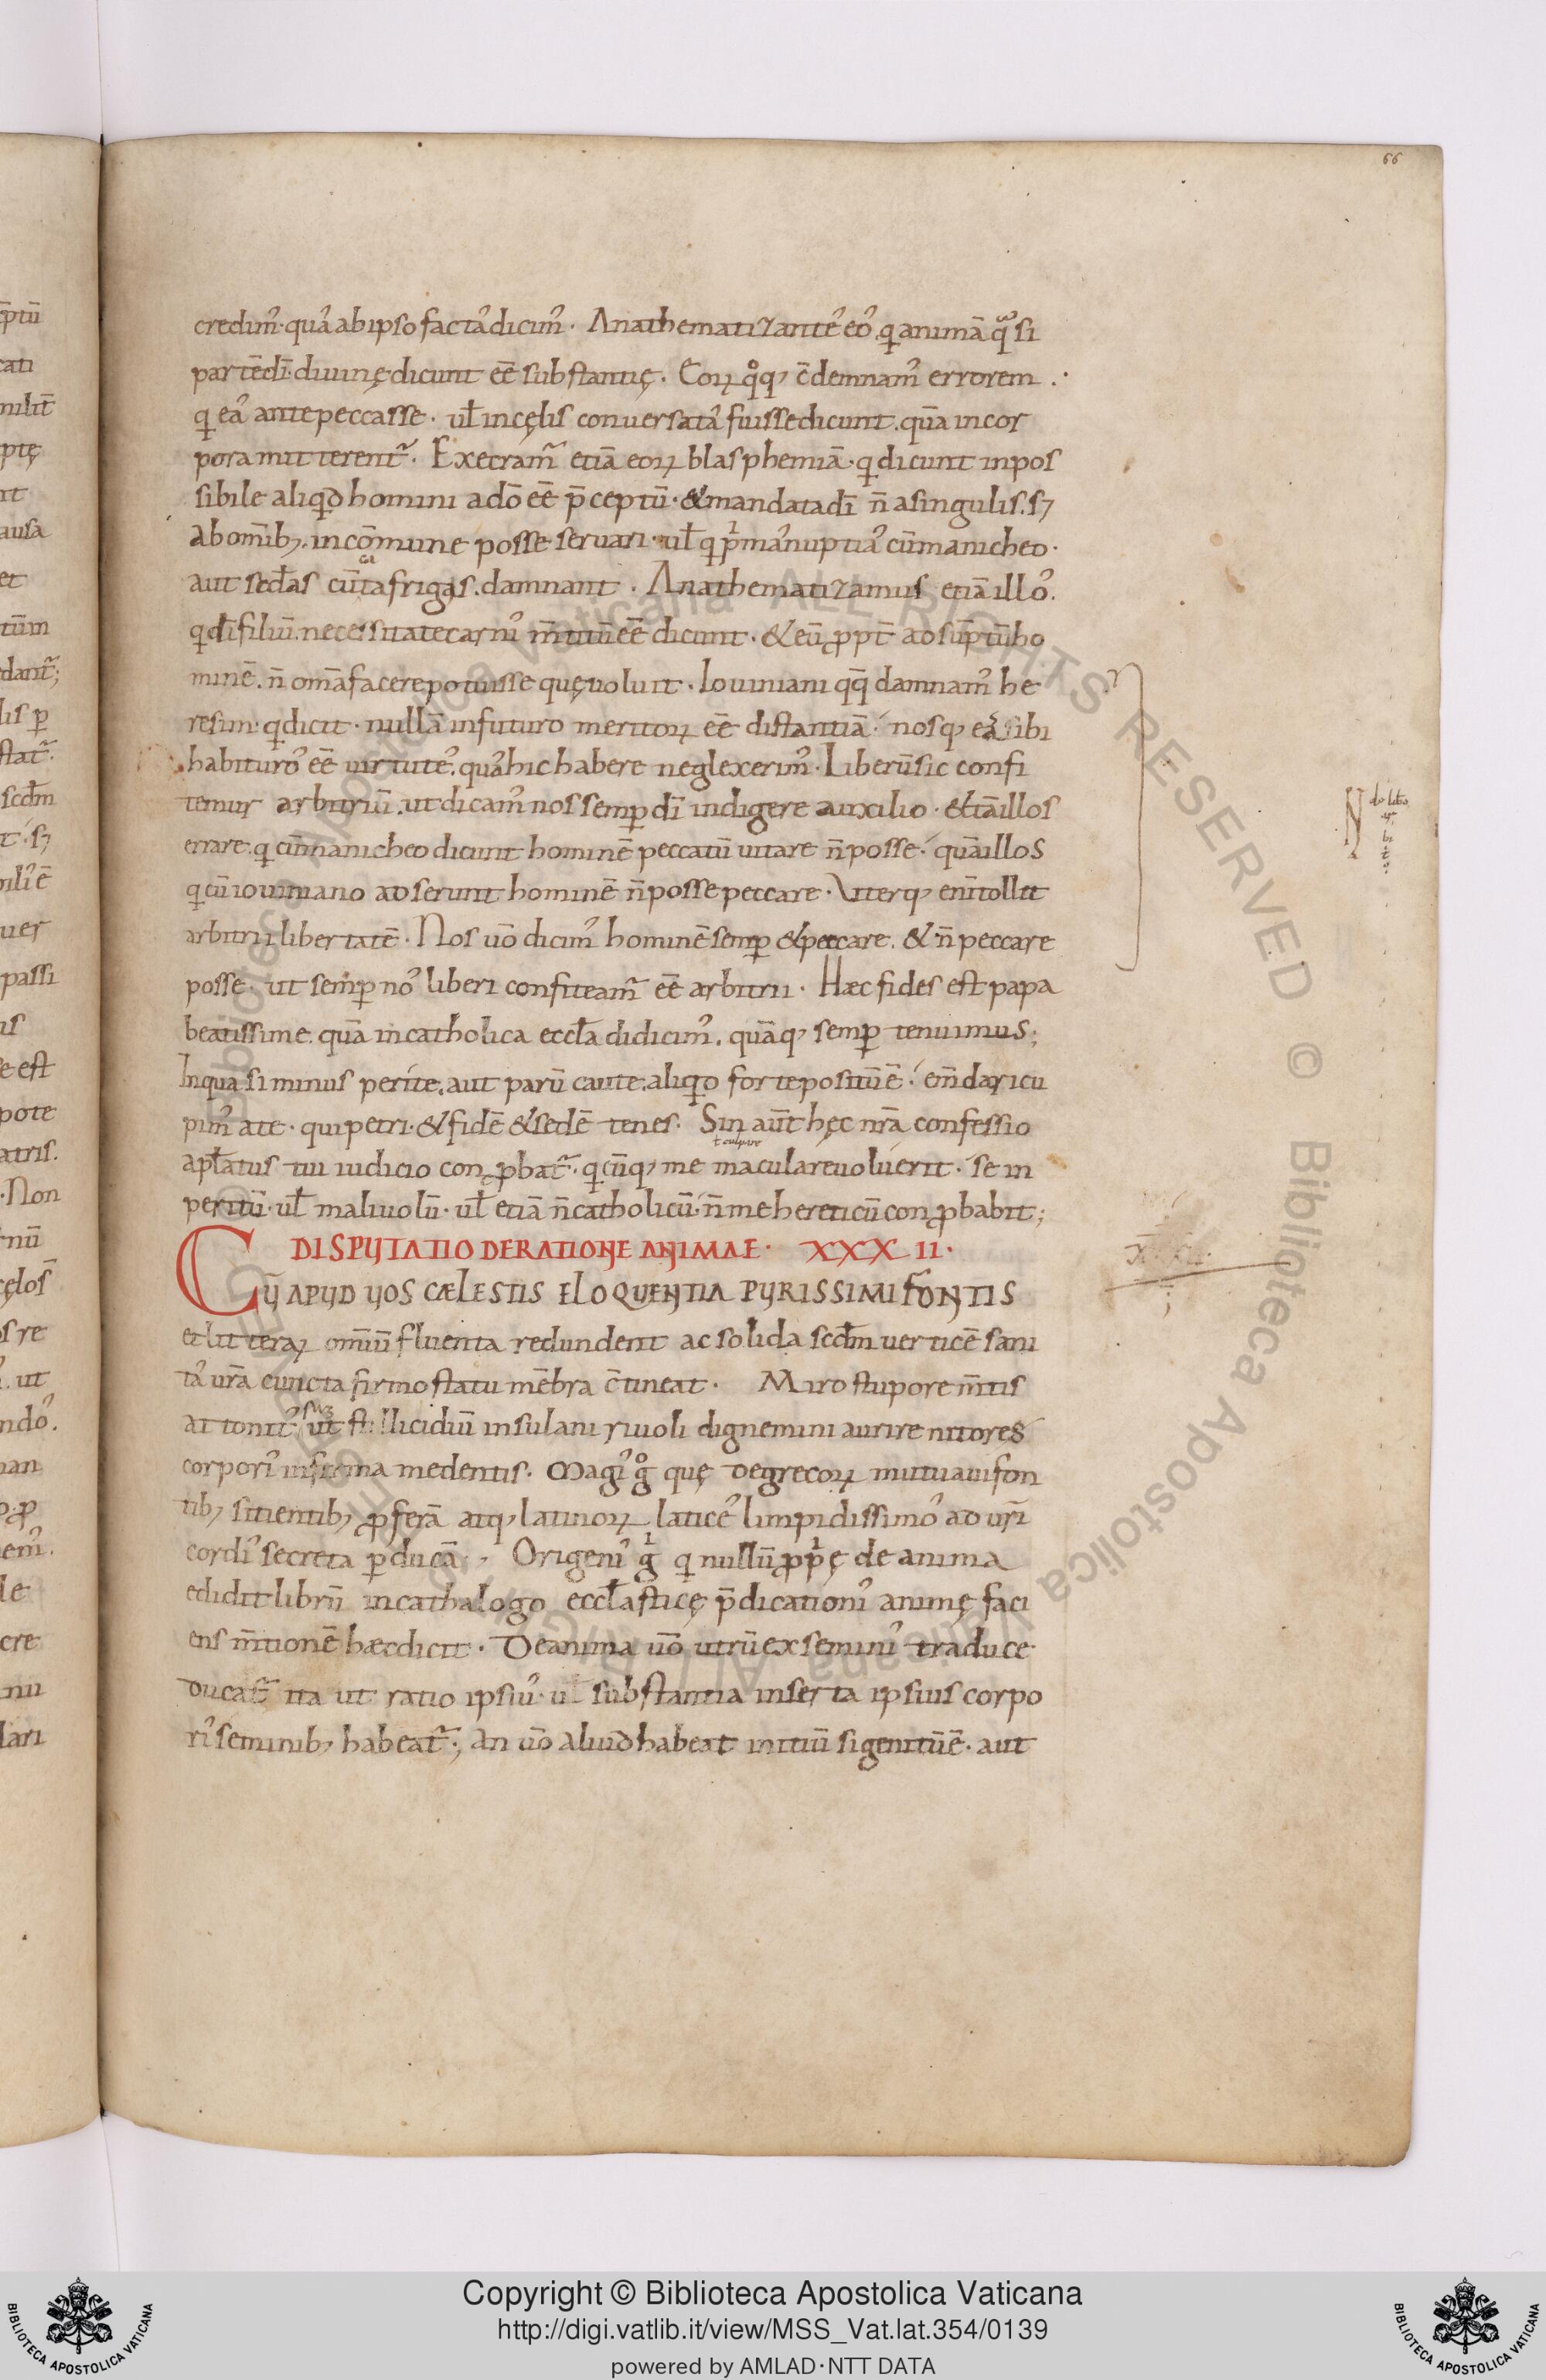 66
credim᾽· quā ab ipso factā dicim᾽· Anathematizantes eos᾽ qi animā qᵃsi
partē dī· diuinę dicunt eē substantię. Eoꝝ qoqꝫ c̄demnam᾽ errorem ·
qi eas᾽ ante peccasse· uł in cęlis conuersatas᾽ fuisse dicunt. quā in cor
pora mitterent᷑. Execram᷑ etiā eoꝝ blasphemiā· qi dicunt inpos
sibile aliqid homini a dō eē p̄ceptū· & mandata dī n̄ a singulis. sꝫ
ab omībꝫ. in cōmune posse seruari· uł qi pⁱmas᾽ nuptias᾽ cū manicheo·
aut secdas cū catafrigas. damnant . Anathematizamus etiā illos᾽.
qi dī filiū. necessitate carnis᾽ m̄titū eē dicunt· & eū ꝓpt̄ adsūptū ho
minē. n̄ om̄a facere potuisse quę uoluit . Iouiniani qq̄ damnam᾽ he
resim· qi dicit· nullā in futuro meritoꝝ eē distantiā· nosqꝫ eas ibi
habituros᾽ eē uirtutes᾽. quas᾽ hic habere neglexerim᾽· Liberū sic confi
temur arbitriū. ut dicam᾽ nos semꝑ dī indigere auxilio · & tā illos
errare. qi cū manicheo dicunt hominē peccatū uitare n̄ posse· quā illos
qi cū iouiniano adserunt hominē n̄ posse peccare· Uterqꝫ enī tollit
arbitrii libertatē· Nos uō dicim᾽ hominē semꝑ & peccare. & n̄ peccare
posse· ut semꝑ nos᾽ liberi confiteam᷑ eē arbitrii· Hæc fides est papa
beatissime. quā in catholica eccła didicim᾽. quāqꝫ semꝑ tenuimus;
In qua si minus perite. aut parū caute. aliqid forte positū ē· em̄dari cu
pim᾽ a te· qui petri· & fidē & sedē tenes· Sin aūt hęc nr̄a confessio
ł culpare
apłatus tui iudicio conꝓbat᷑· qicūqꝫ me maculare uoluerit· se in
peritū· uł maliuolū· uł etiā n̄ catholicū· n̄ me hereticū conꝓbabit;
DISPUTATIO DE RATIONE ANIMAE· XXXII·
CŪ APUD UOS CÆLESTIS ELOQUENTIA PURISSIMI FONTIS
et litteraꝝ omīū fluenta redundent ac solida scdm uerticē sani
tas᾽ ur̄a cuncta firmo statu mēbra c̄tineat· Miro stupore m̄tis
attonit᾽ sū ut stillicidiū insulani riuoli dignemini aurire nitores
corporis᾽ infirma medentis· Magis᾽ gͦ quę de grecoꝝ mutuaui fon
tibꝫ sitientibꝫ ꝓferā atqꝫ latinoꝝ latices᾽ limpidissimos᾽ ad ur̄i
cordis᾽ secreta ꝑducā· Origenis᾽ gⁱ qi nullū ꝓpⁱę de anima
edidit librū in cathalogo eccłasticę p̄dicationis᾽ animę faci
ens m̄tionē hæc dicit· De anima uō utrū ex seminis᾽ traduce·
ducat᷑ ita ut ratio ipsius᾽· uł substantia inserta ipsius corpo
ris᾽ seminibꝫ habeat᷑; an uō aliud habeat initiū si genitū ē· aut
Copyright © Biblioteca Apostolica Vaticana
http://digi.vatlib.it/view/MSS_Vat.lat.354/0139
powered by AMLAD·NTT DATA
BIBLIOTECA APOSTOLICA VATICANA
BIBLIOTECA APOSTOLICA VATICANA